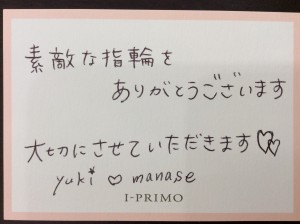 素敵な指輪を
ありがとうございます
大切にさせていただきます♡♡
yuki ♡ manase
I-PRIMO